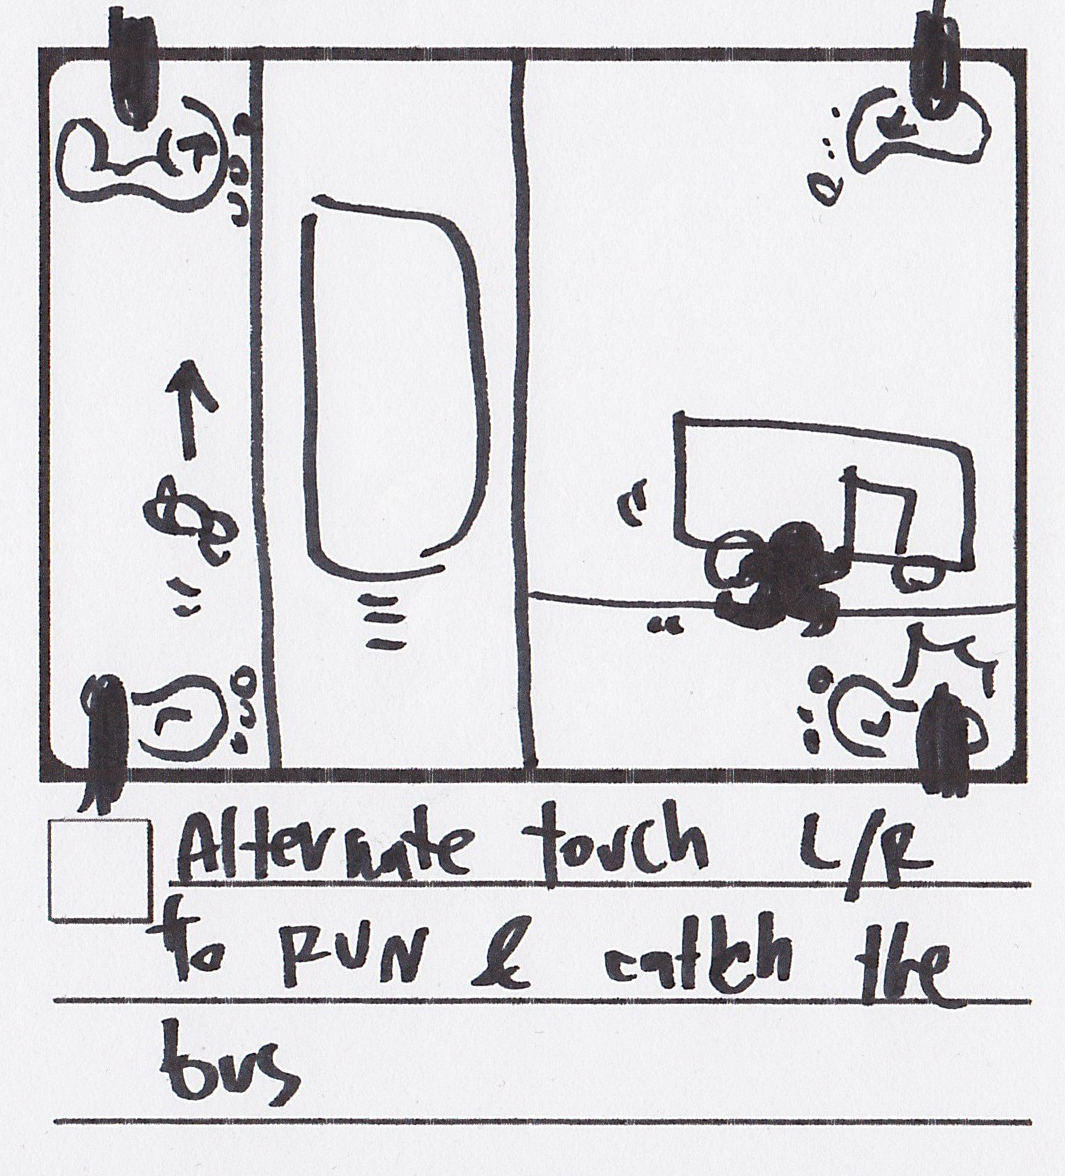 Alternate touch L/R
to RUN & catch the
bus